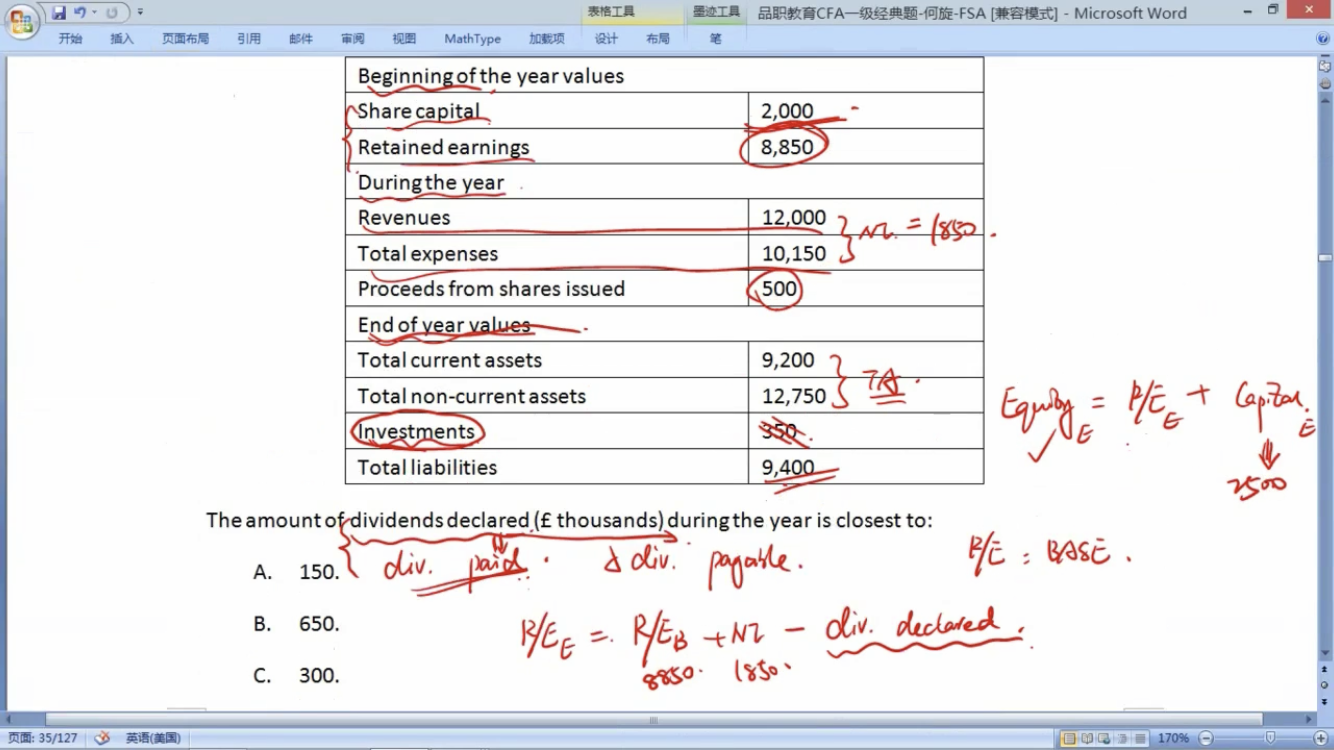 表格工具 墨迹工具 品职教育CFA一级经典题-何旋-FSA [兼容模式] - Microsoft Word
开始 插入 页面布局 引用 邮件 审阅 视图 MathType 加载项 设计 布局 笔
Beginning of the year values
Share capital 2,000
Retained earnings 8,850
During the year
Revenues 12,000
Total expenses 10,150
NI. = 1850.
Proceeds from shares issued 500
End of year values
Total current assets 9,200
Total non-current assets 12,750
TA
Investments 350
Total liabilities 9,400
Equity E = R/E E + Capital. E
2500
The amount of dividends declared (£ thousands) during the year is closest to:
div. paid. Δ div. payable.
R/E : BASE.
A. 150.
B. 650.
R/E E = R/E B + NI - div. declared.
8850. 1850.
C. 300.
页面: 35/127 英语(美国) 170%